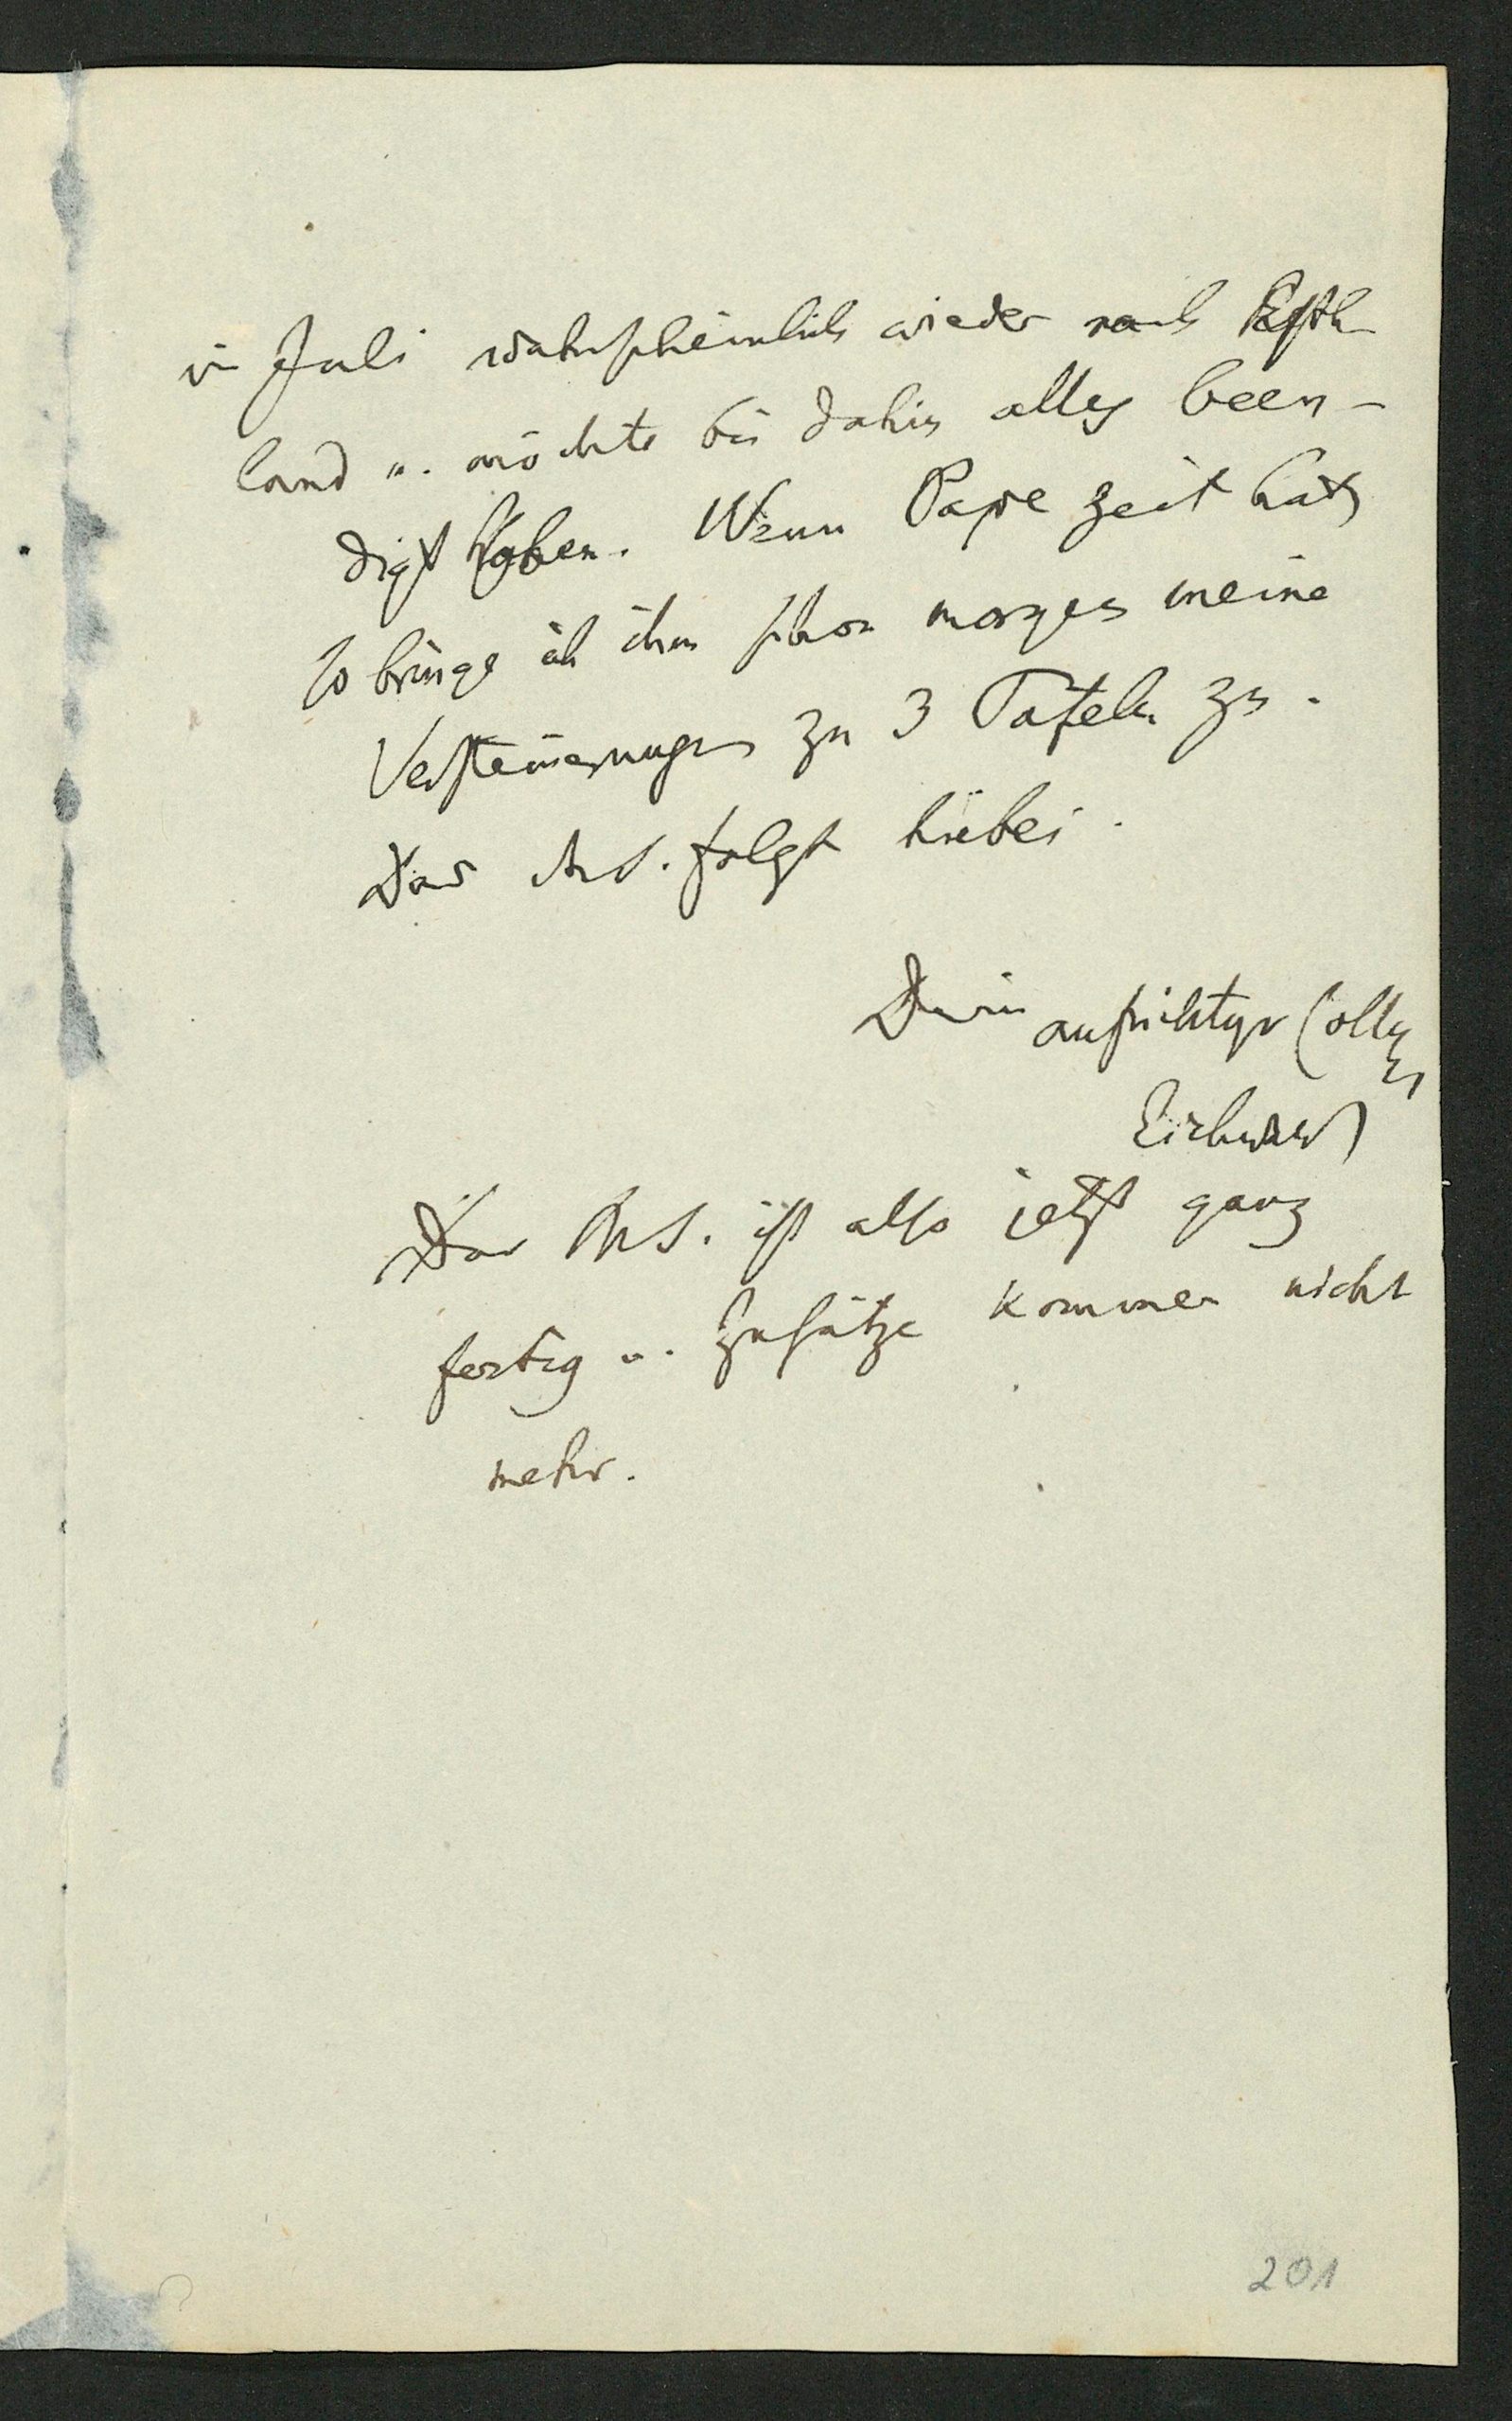 im Juli wahrscheinlich wieder nach Esth-
land u. möchte bis dahin alles been-
digt haben. Wenn Pape Zeit hat,
so bringe ich ihm schon morgen meine
Versteinerungen zu 3 Tafeln zu.
Das MS. folgt hiebei.
Dein aufrichtiger College
Eichwald
Das MS. ist also jetzt ganz
fertig u. Zusätze kommen nicht
mehr.
201